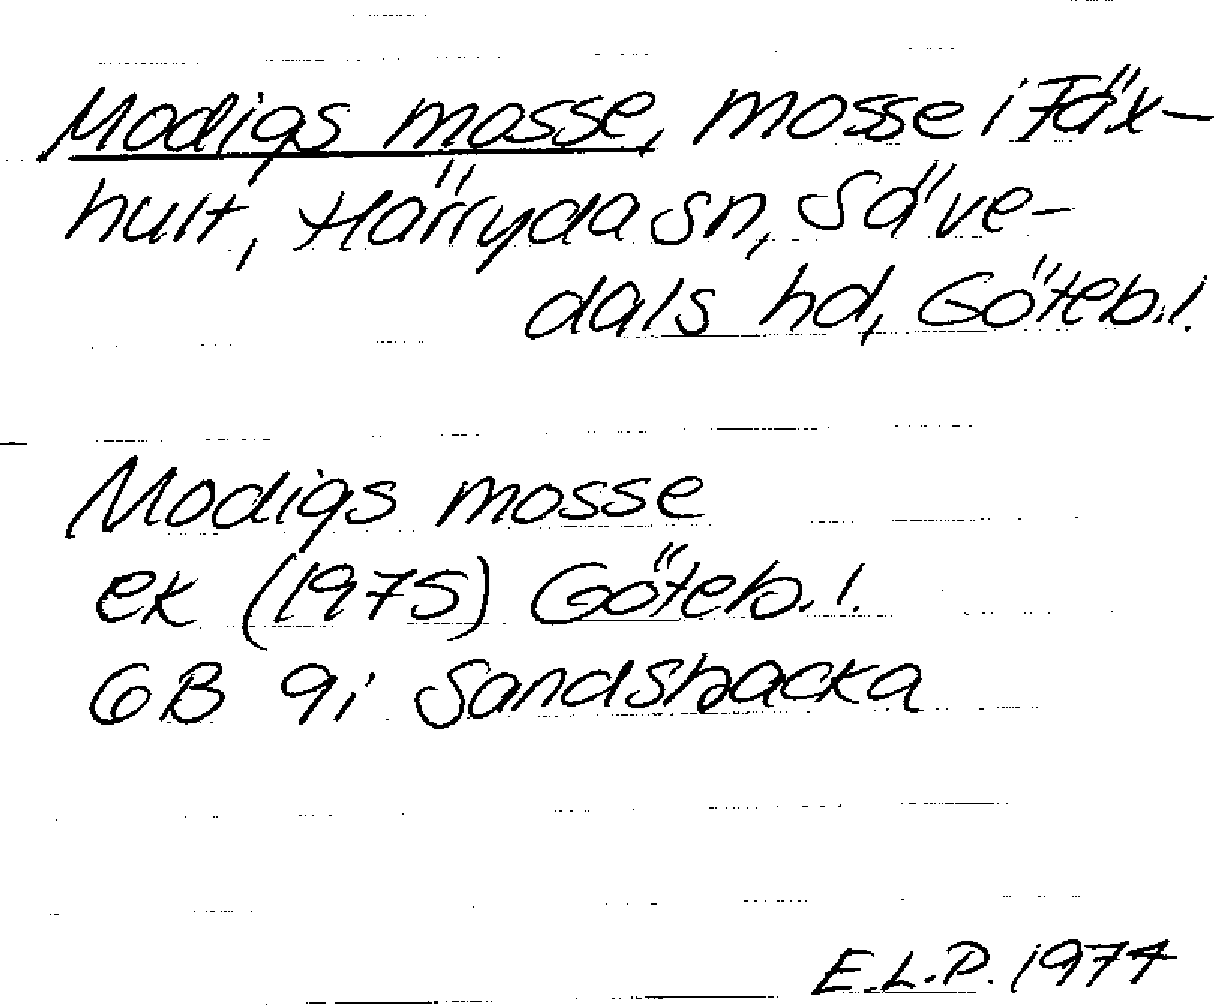 Modigs mosse, mosse i Fäx-
hult, Härryda sn, Säve-
dals hd, Göteb. l.
Modigs mosse
ek (1975) Göteb. l.
6B 9i Sandsbacka
E.L.P. 1974